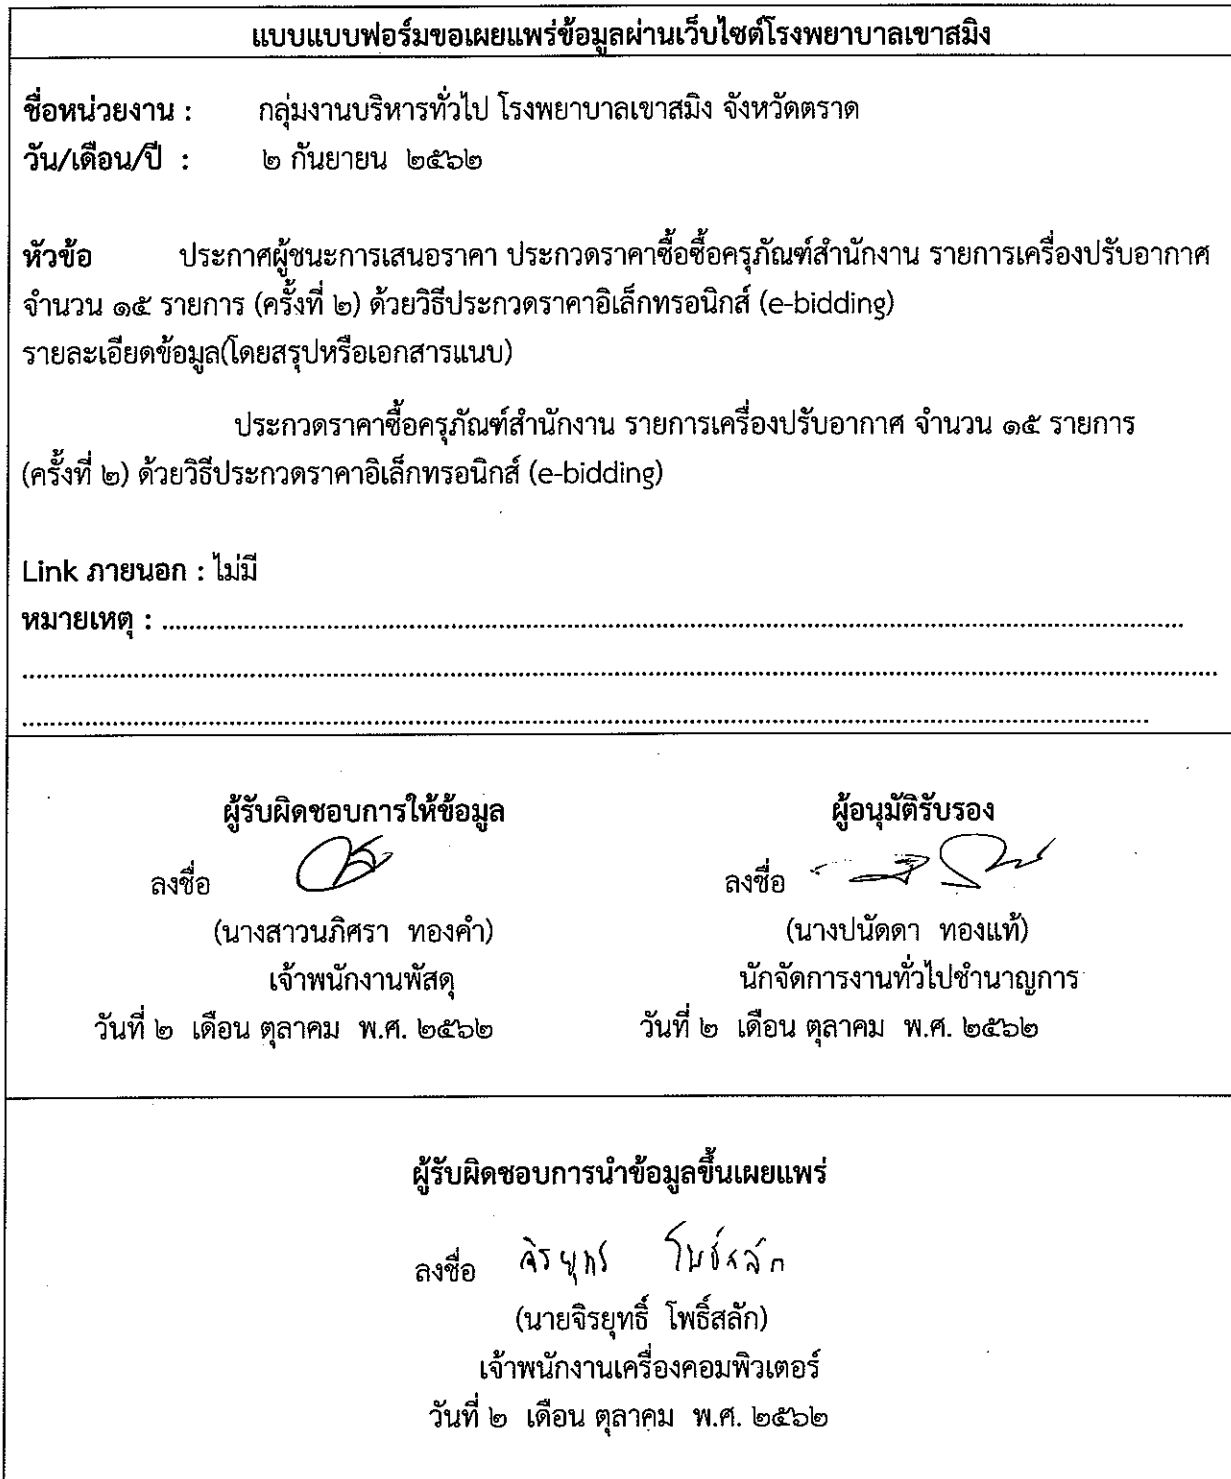 แบบแบบฟอร์มขอเผยแพร่ข้อมูลผ่านเว็บไซต์โรงพยาบาลเขาสมิง
ชื่อหน่วยงาน : กลุ่มงานบริหารทั่วไป โรงพยาบาลเขาสมิง จังหวัดตราด
วัน/เดือน/ปี : ๒ กันยายน ๒๕๖๒
หัวข้อ ประกาศผู้ชนะการเสนอราคา ประกวดราคาซื้อซื้อครุภัณฑ์สำนักงาน รายการเครื่องปรับอากาศ
จำนวน ๑๕ รายการ (ครั้งที่ ๒) ด้วยวิธีประกวดราคาอิเล็กทรอนิกส์ (e-bidding)
รายละเอียดข้อมูล(โดยสรุปหรือเอกสารแนบ)
ประกวดราคาซื้อครุภัณฑ์สำนักงาน รายการเครื่องปรับอากาศ จำนวน ๑๕ รายการ
(ครั้งที่ ๒) ด้วยวิธีประกวดราคาอิเล็กทรอนิกส์ (e-bidding)
Link ภายนอก : ไม่มี
หมายเหตุ : ........................................................................................................................
........................................................................................................................
........................................................................................................................
ผู้รับผิดชอบการให้ข้อมูล ผู้อนุมัติรับรอง
ลงชื่อ ลงชื่อ
(นางสาวนภิศรา ทองคำ) (นางปนัดดา ทองแท้)
เจ้าพนักงานพัสดุ นักจัดการงานทั่วไปชำนาญการ
วันที่ ๒ เดือน ตุลาคม พ.ศ. ๒๕๖๒ วันที่ ๒ เดือน ตุลาคม พ.ศ. ๒๕๖๒
ผู้รับผิดชอบการนำข้อมูลขึ้นเผยแพร่
ลงชื่อ จิรยุทธ์ โพธิ์สลัก
(นายจิรยุทธิ์ โพธิ์สลัก)
เจ้าพนักงานเครื่องคอมพิวเตอร์
วันที่ ๒ เดือน ตุลาคม พ.ศ. ๒๕๖๒